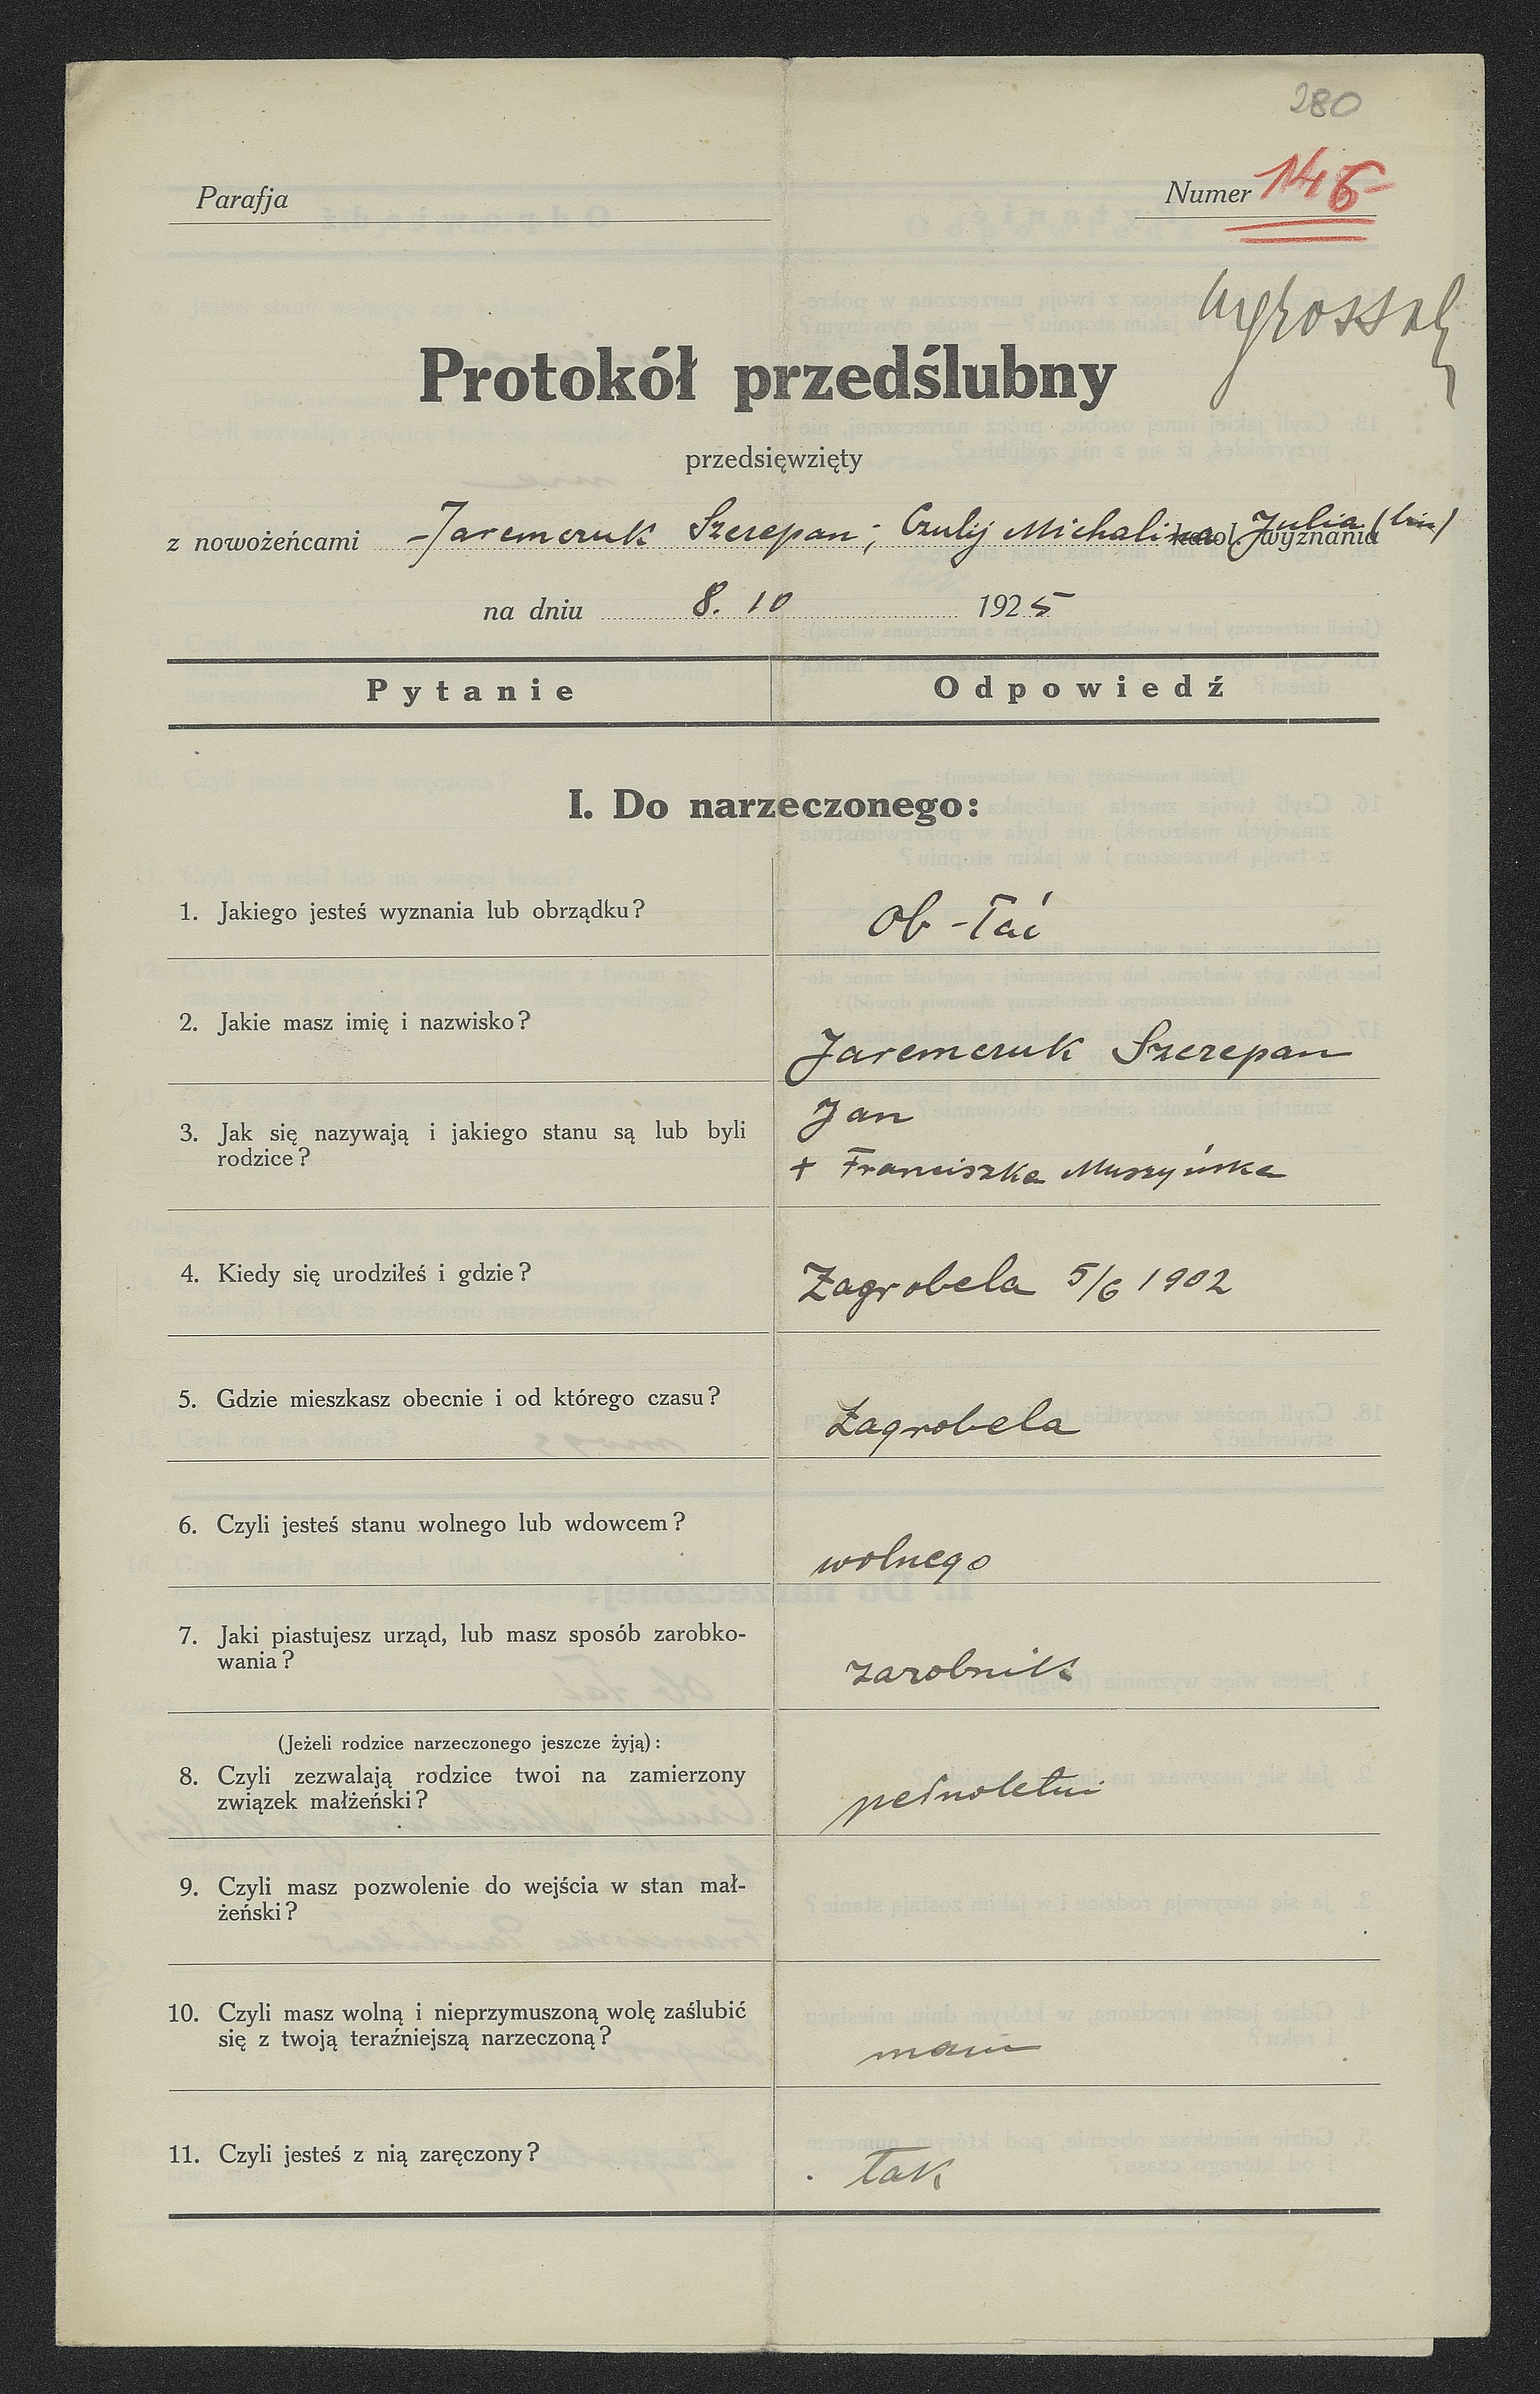 280
Parafja
Numer 146
Protokół przedślubny
przedsięwzięty
z nowożeńcami Jaremczuk Szczepan; Czulij Michalina (Julia (bin) katol. wyznania
na dniu 8. 10 1925
Pytanie Odpowiedź
I. Do narzeczonego:
1. Jakiego jesteś wyznania lub obrządku?
Ob-łać
2. Jakie masz imię i nazwisko?
Jaremczuk Szczepan
3. Jak się nazywają i jakiego stanu są lub byli
rodzice?
Jan
+ Franciszka Muszyńska
4. Kiedy się urodziłeś i gdzie?
Zagrobela 5/6 1902
5. Gdzie mieszkasz obecnie i od którego czasu?
Zagrobela
6. Czyli jesteś stanu wolnego lub wdowcem?
wolnego
7. Jaki piastujesz urząd, lub masz sposób zarobko-
wania?
zarobnik
(Jeżeli rodzice narzeczonego jeszcze żyją):
8. Czyli zezwalają rodzice twoi na zamierzony
związek małżeński?
pełnoletni
9. Czyli masz pozwolenie do wejścia w stan mał-
żeński?
10. Czyli masz wolną i nieprzymuszoną wolę zaślubić
się z twoją teraźniejszą narzeczoną?
mam
11. Czyli jesteś z nią zaręczony?
tak